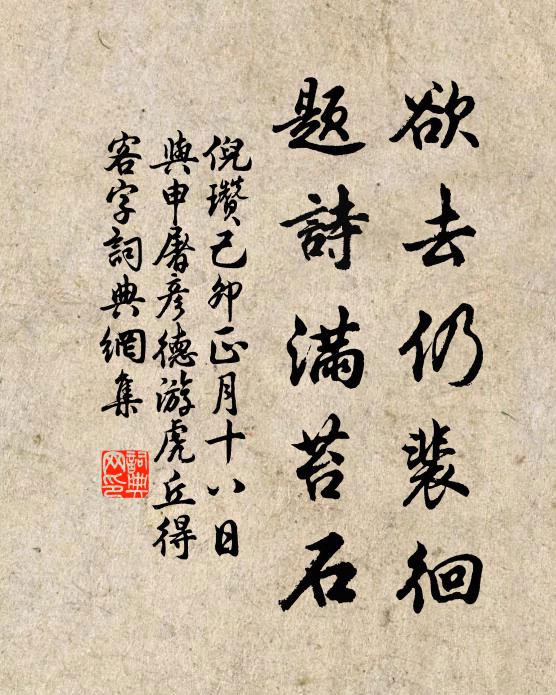 欲去仍裴徊
題詩滿苔石
倪瓚己卯正月十八日
與申屠彥德游虎丘得
客字詞典網集
詞典
网印